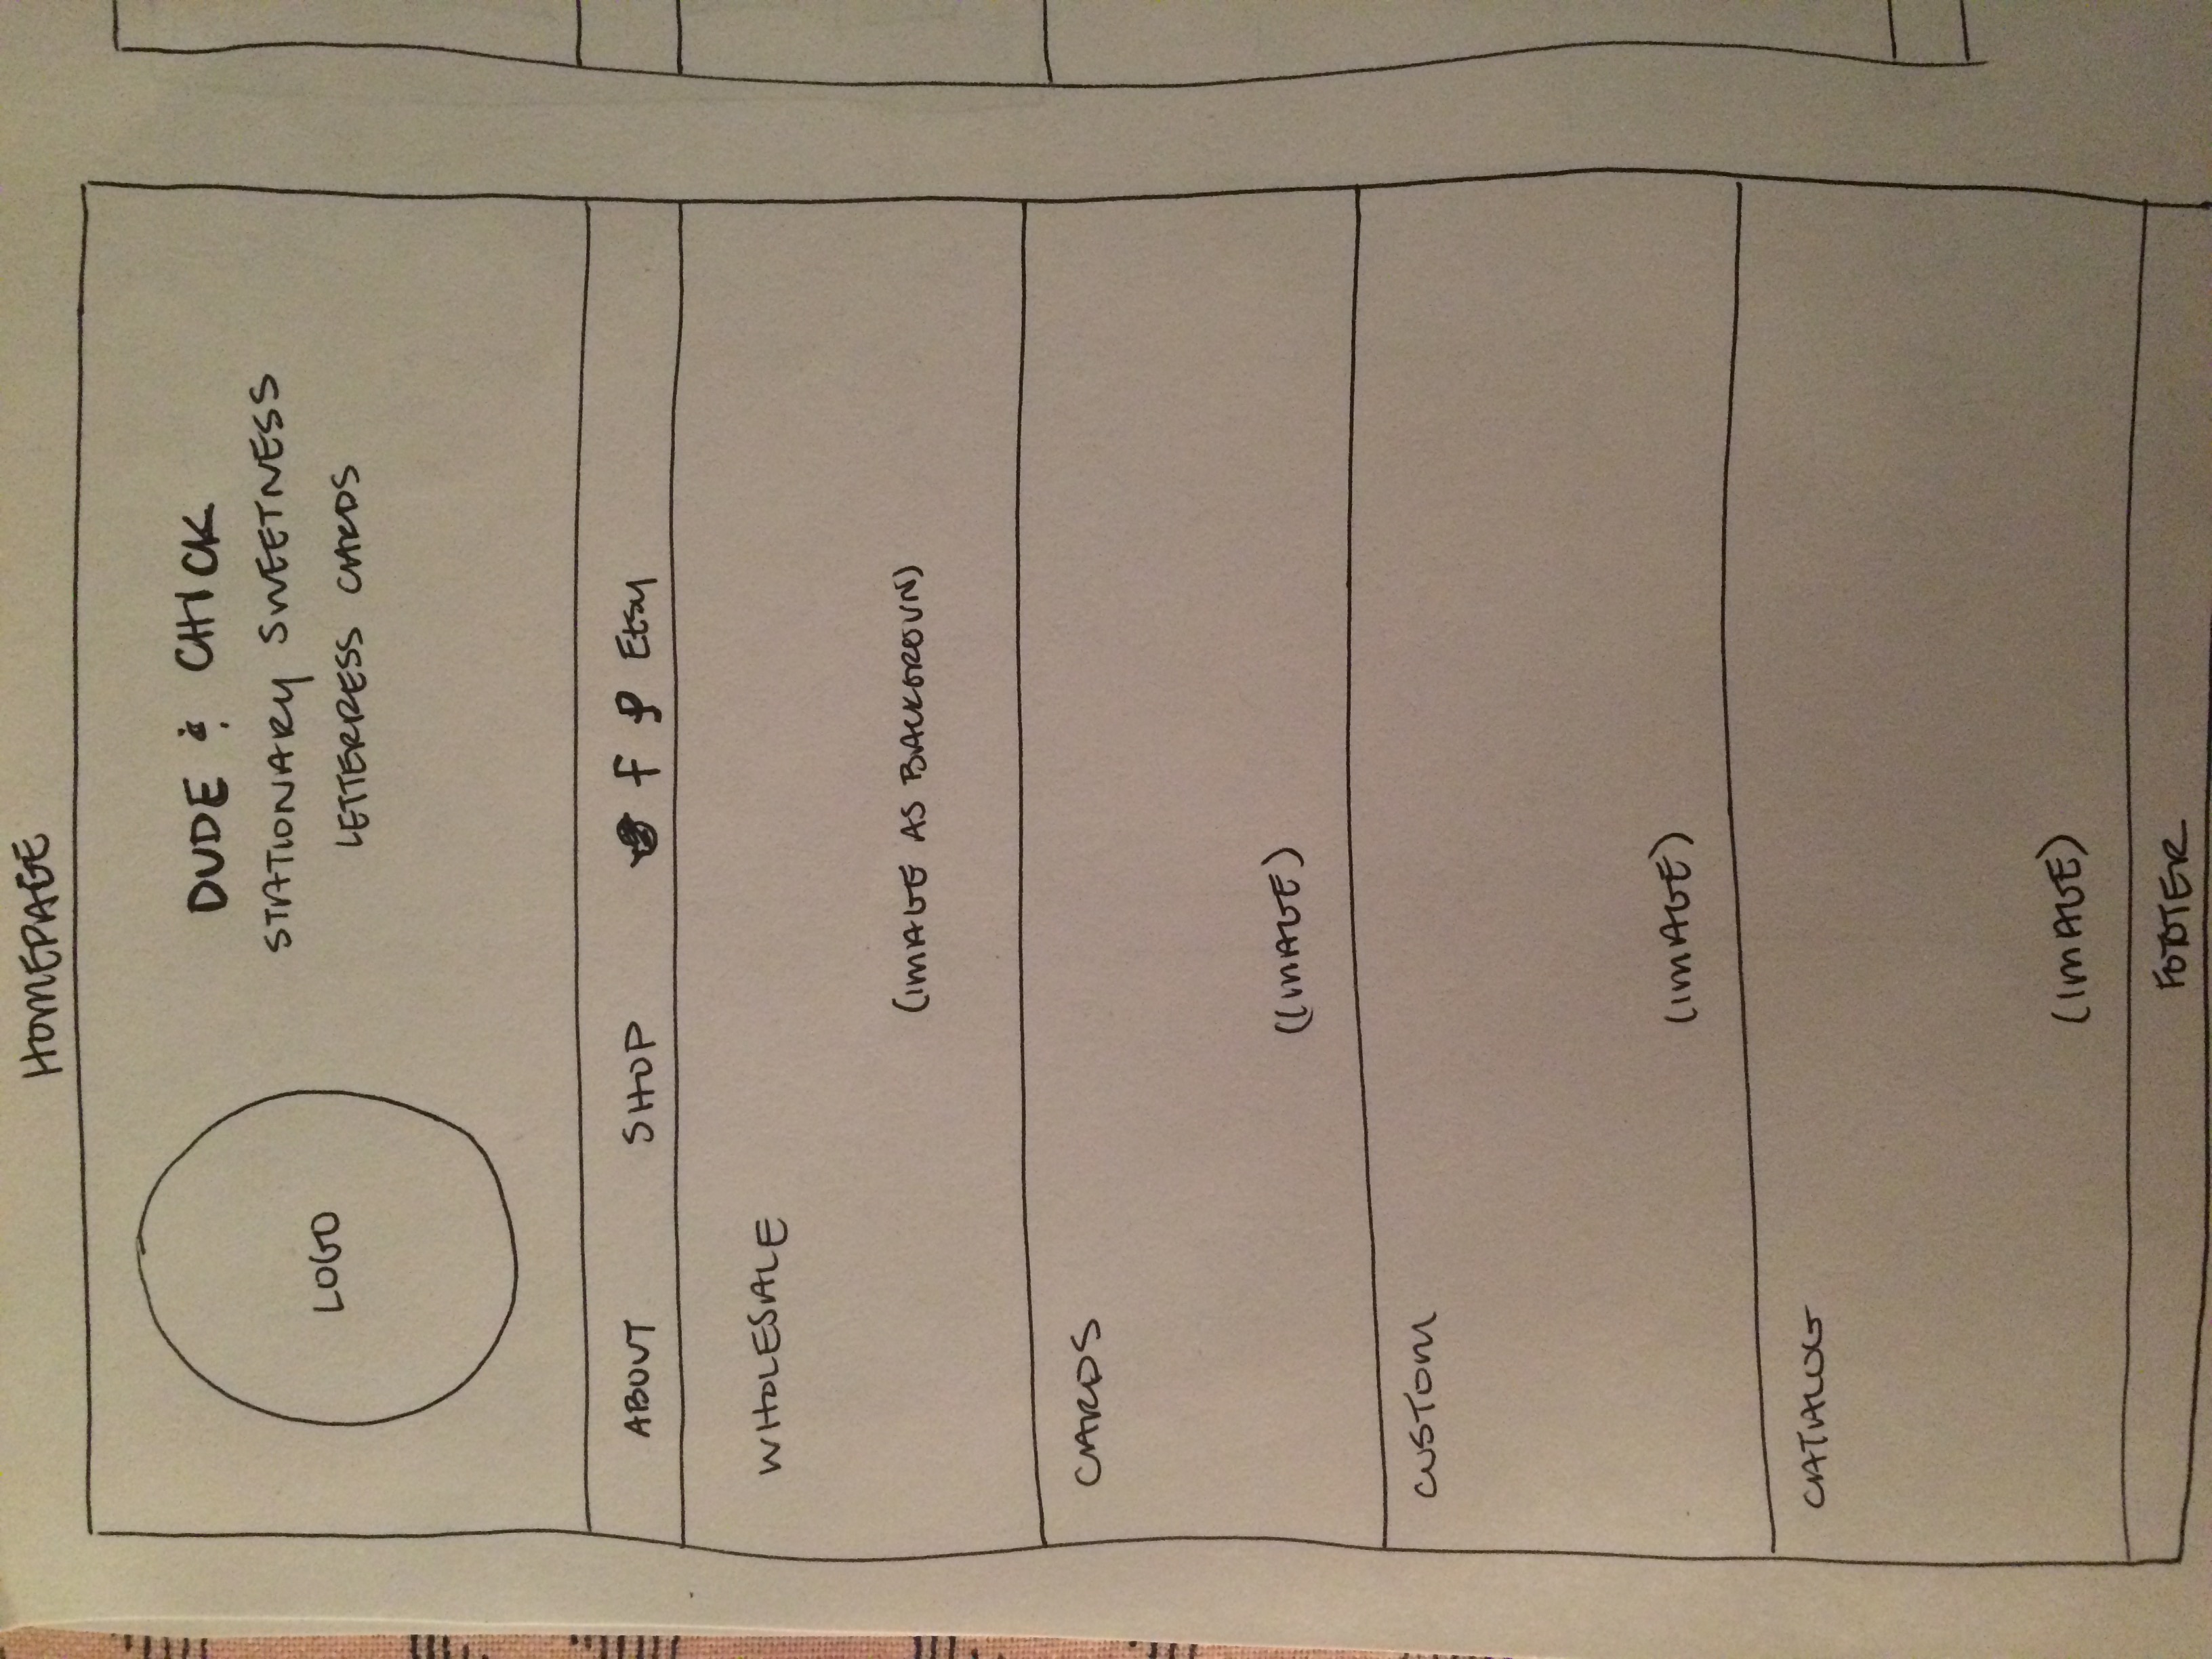 HOMEPAGE
LOGO
DUDE & CHICK
STATIONARY SWEETNESS
LETTERPRESS CARDS
ABOUT SHOP f Etsy
WHOLESALE
(IMAGE AS BACKGROUN)
CARDS
(IMAGE)
CUSTOM
(IMAGE)
CATALOG
(IMAGE)
FOOTER